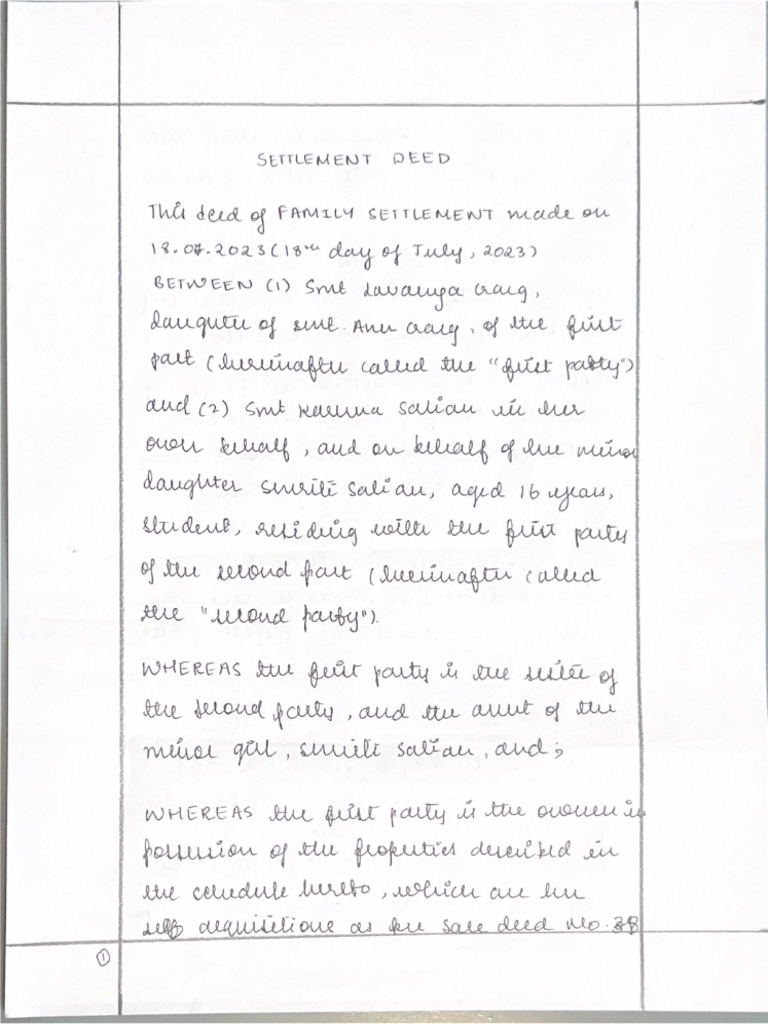 SETTLEMENT DEED
This deed of FAMILY SETTLEMENT made on
18.07.2023 (18th day of July, 2023)
BETWEEN (1) Smt Lavanya Craig,
daughter of smt. Ann Craig, of the first
part (hereinafter called the "first party")
and (2) Smt Karuna Salian in her
own behalf, and on behalf of the minor
daughter Smriti Salian, aged 16 years,
student, residing with the first party
of the second part (hereinafter called
the "second party").
WHEREAS the first party is the sister of
the second party, and the aunt of the
minor girl, Smriti Salian, and;
WHEREAS the first party is the owner in
possession of the properties described in
the schedule hereto, which are her
self acquisitions as per sale deed No. 38
1